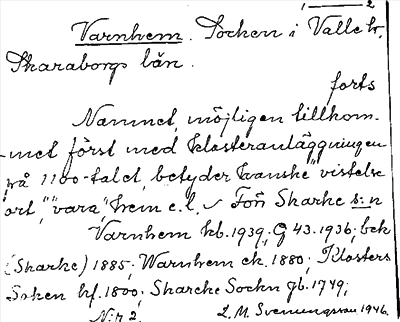 1 2
Varnhem. Socken i Valle hr,
Skaraborgs län.
forts
Namnet, möjligen tillkom-
met först med klosteranläggningen
på 1100-talet, betyder kanske "vistelse
ort", "vara", hem e.l. Förr Skarke s:n
Varnhem kb. 1939, G 43. 1936; bek
(Skarke) 1885; Warnhem ek. 1880; Klosters
Soken hf. 1800; Skarcke Sockn gb. 1749;
N:r 2. L.M. Svenungsson 1946.